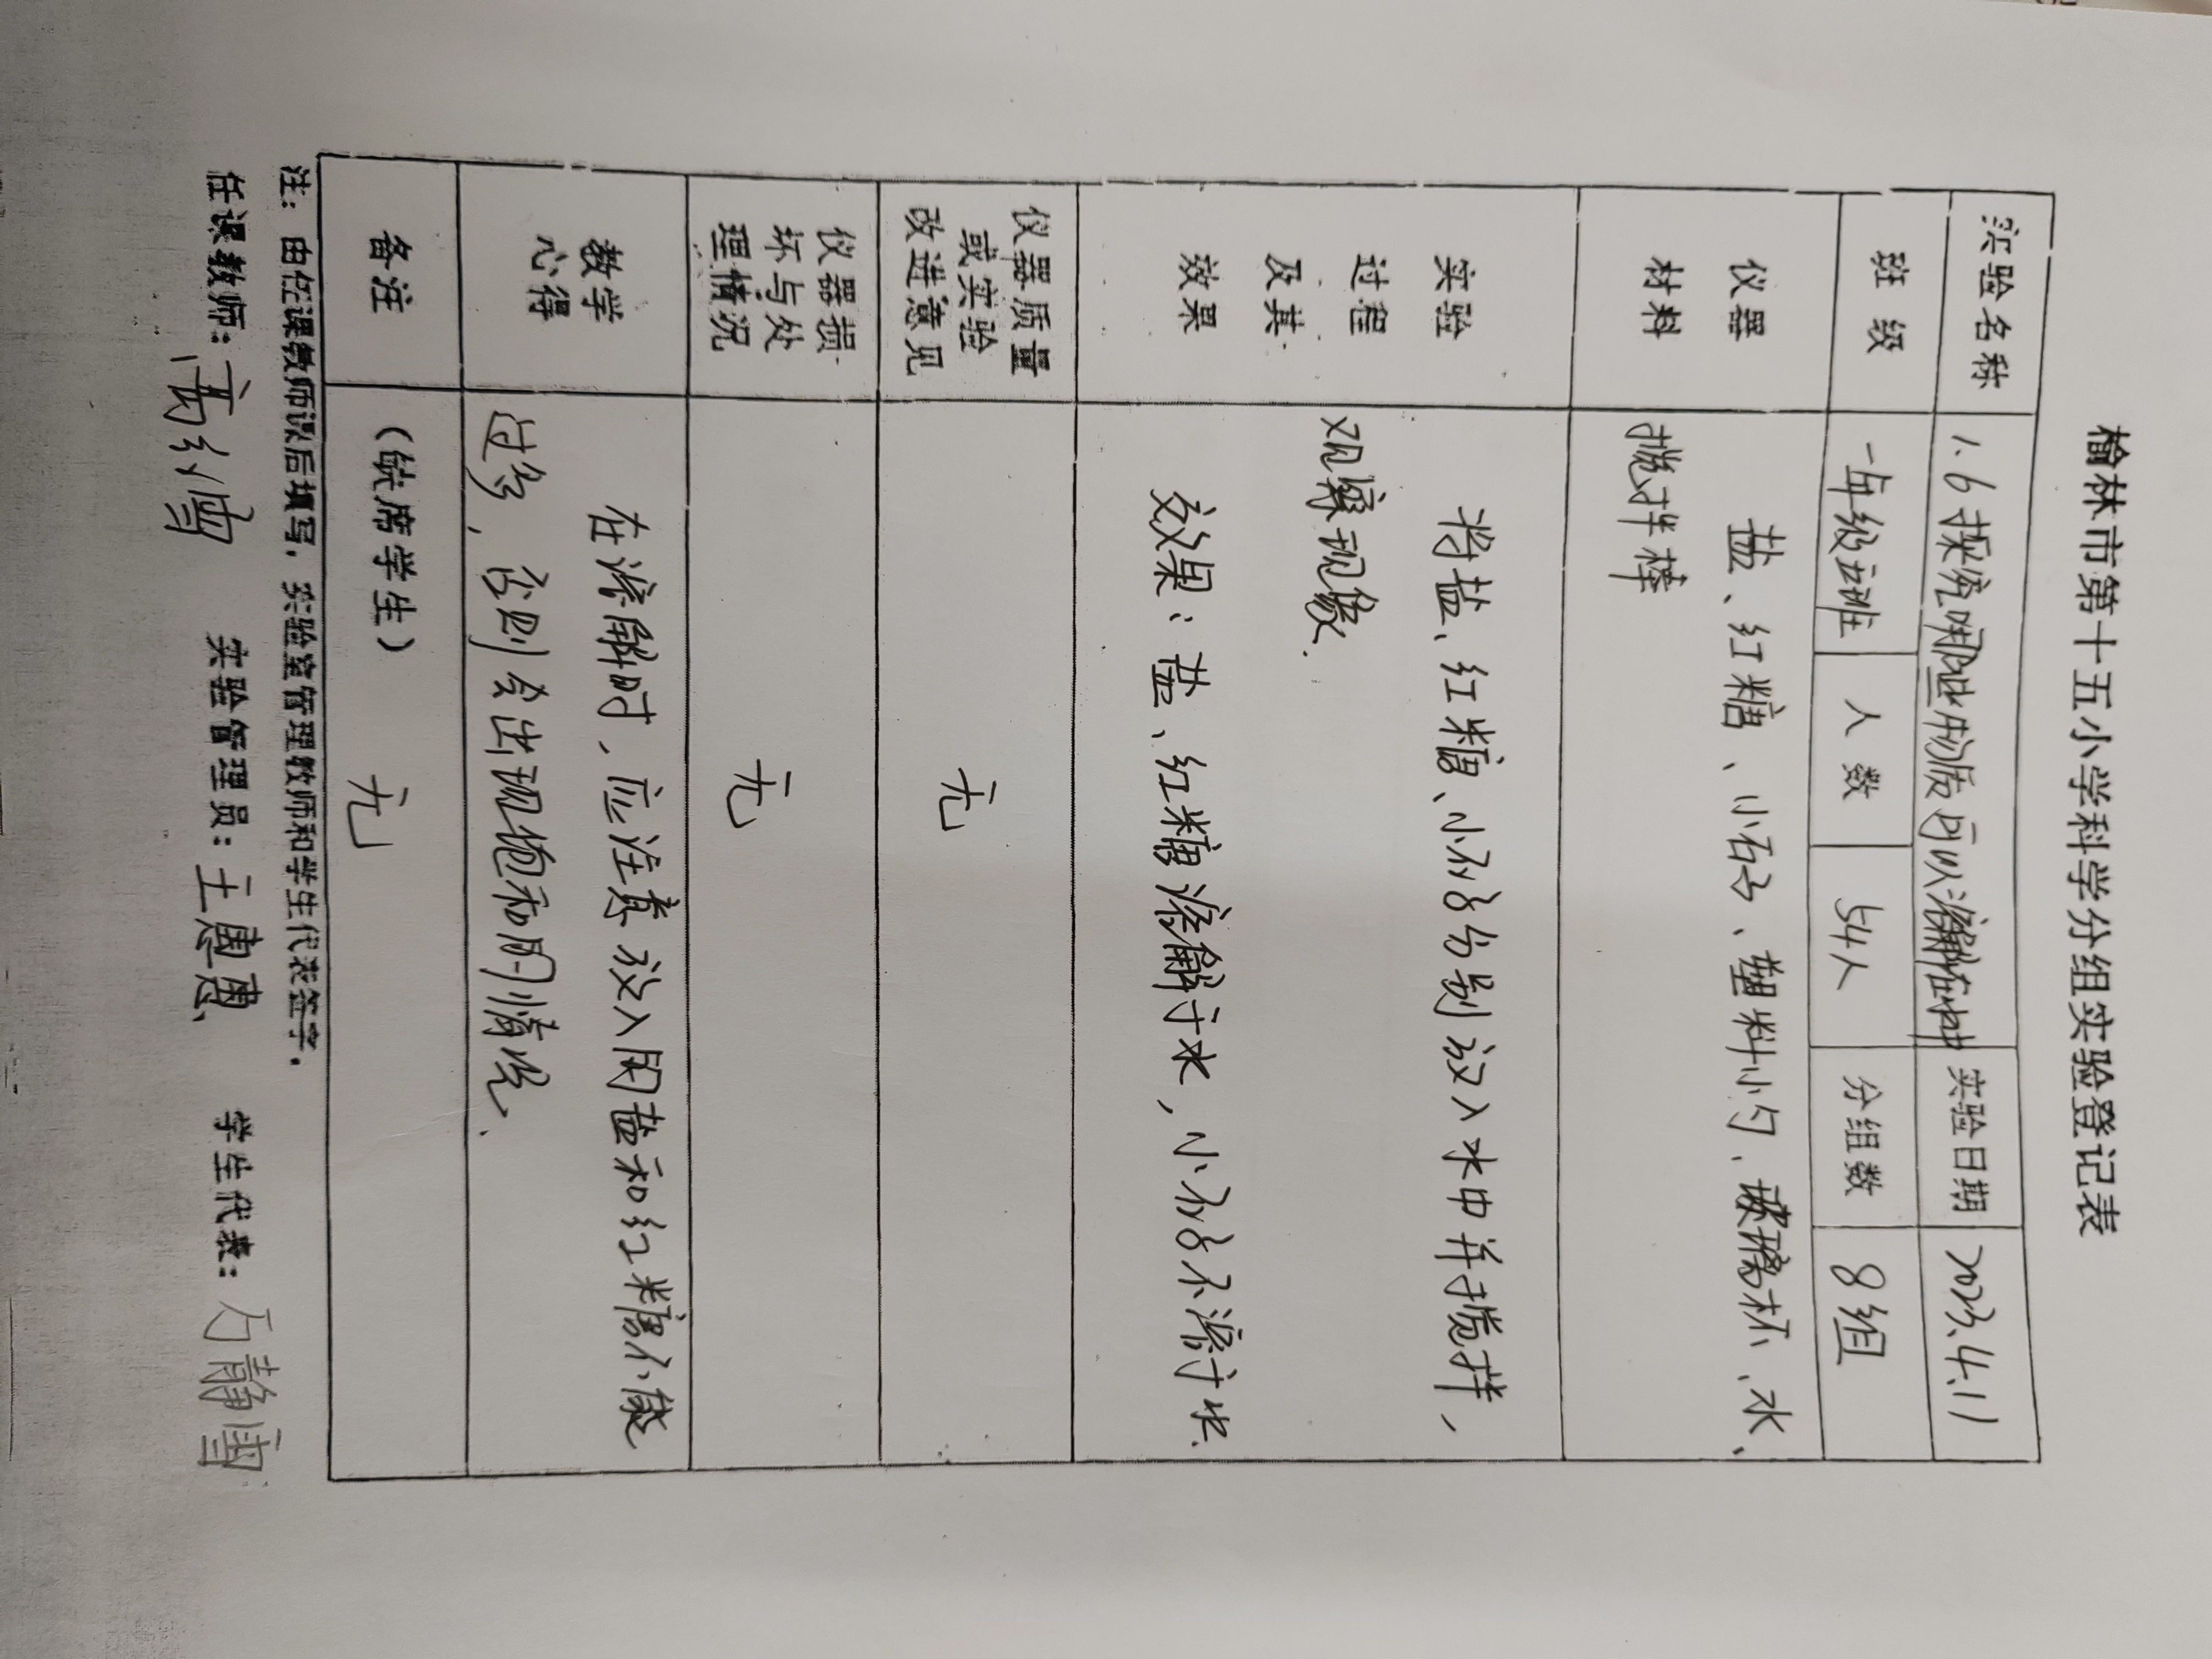 榆林市第十五小学科学分组实验登记表
实验名称 1.6探究哪些物质可以溶解在水中 实验日期 2023.4.11
班级 一年级班 人数 54人 分组数 8组
仪器材料 盐、红糖、小石子、塑料小勺、玻璃杯、水、
搅拌棒
实验过程及其效果 将盐、红糖、小石子分别放入水中并搅拌,
观察现象.
效果:盐、红糖溶解于水,小石子不溶于水.
仪器质量或实验改进意见 无
仪器损坏与处理情况 无
教学心得 在溶解时,应注意放入的盐和红糖不能
过多,否则会出现饱和的情况.
备注 (缺席学生) 无
注:由任课教师课后填写,实验室管理教师和学生代表签字.
任课教师:高 实验管理员:王惠惠 学生代表:静雷